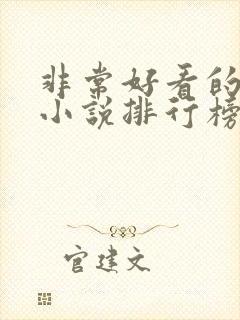 非常好看的
小说排行榜
官建文